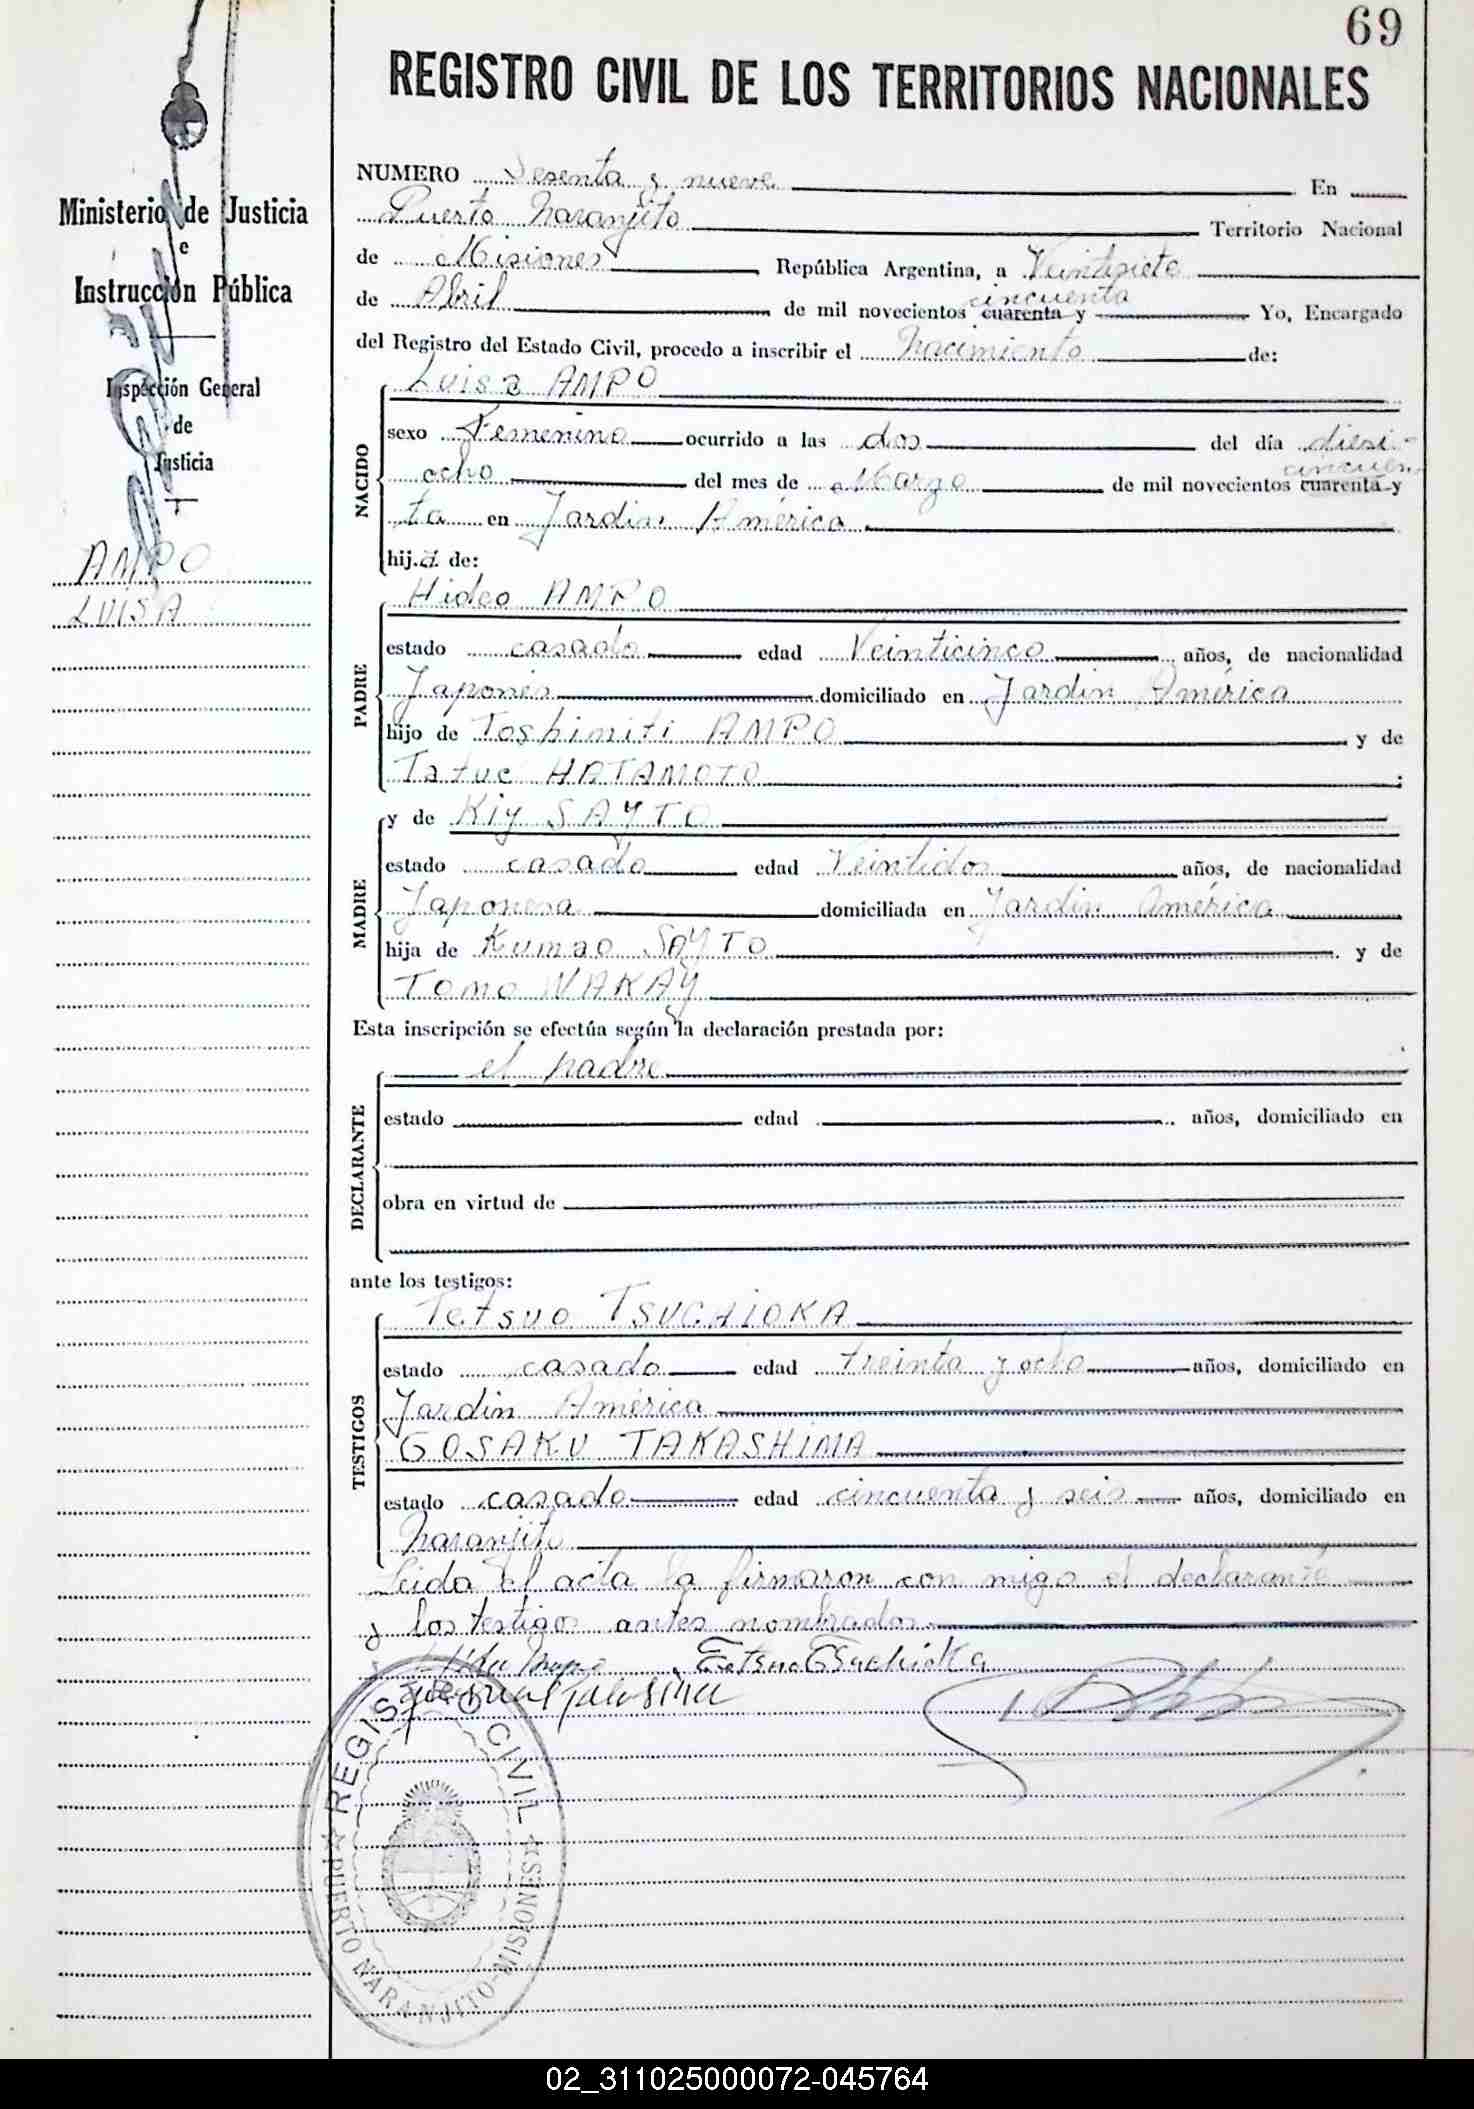 69
REGISTRO CIVIL DE LOS TERRITORIOS NACIONALES
Ministerio de Justicia
e
Instrucción Pública
Inspección General
de
Justicia
AMPO
LUISA
NUMERO Sesenta y nueve En
Puerto Naranjito Territorio Nacional
de Misiones República Argentina, a Veintisiete
cincuenta
de Abril de mil novecientos cuarenta y Yo, Encargado
del Registro del Estado Civil, procedo a inscribir el Nacimiento de:
NACIDO
Luisa AMPO
sexo Femenino ocurrido a las dos del día diesi-
cincuen
ocho del mes de Marzo de mil novecientos cuarenta y
ta en Jardin América
hij.a. de:
PADRE
Hideo AMPO
estado casado edad Veinticinco años, de nacionalidad
Japonés domiciliado en Jardin América
hijo de Toshimiti AMPO y de
Tatue HATAMOTO ;
MADRE
y de Kiy SAYTO
estado casado edad Veintidos años, de nacionalidad
Japonesa domiciliada en Jardin América
hija de Kumao SAYTO y de
Tomo WAKAY
Esta inscripción se efectúa según la declaración prestada por:
DECLARANTE
el padre
estado edad años, domiciliado en
obra en virtud de
ante los testigos:
TESTIGOS
Tetsuo TSUCHIOKA
estado casado edad treinta y ocho años, domiciliado en
Jardin América
GOSAKU TAKASHIMA
estado casado edad cincuenta y seis años, domiciliado en
Naranjito
Leida el acta la firmaron con migo el declarante
y los testigos antes nombrados.
Tetsuo Tsuchioka
REGISTRO CIVIL
PUERTO NARANJITO-MISIONES
02_311025000072-045764